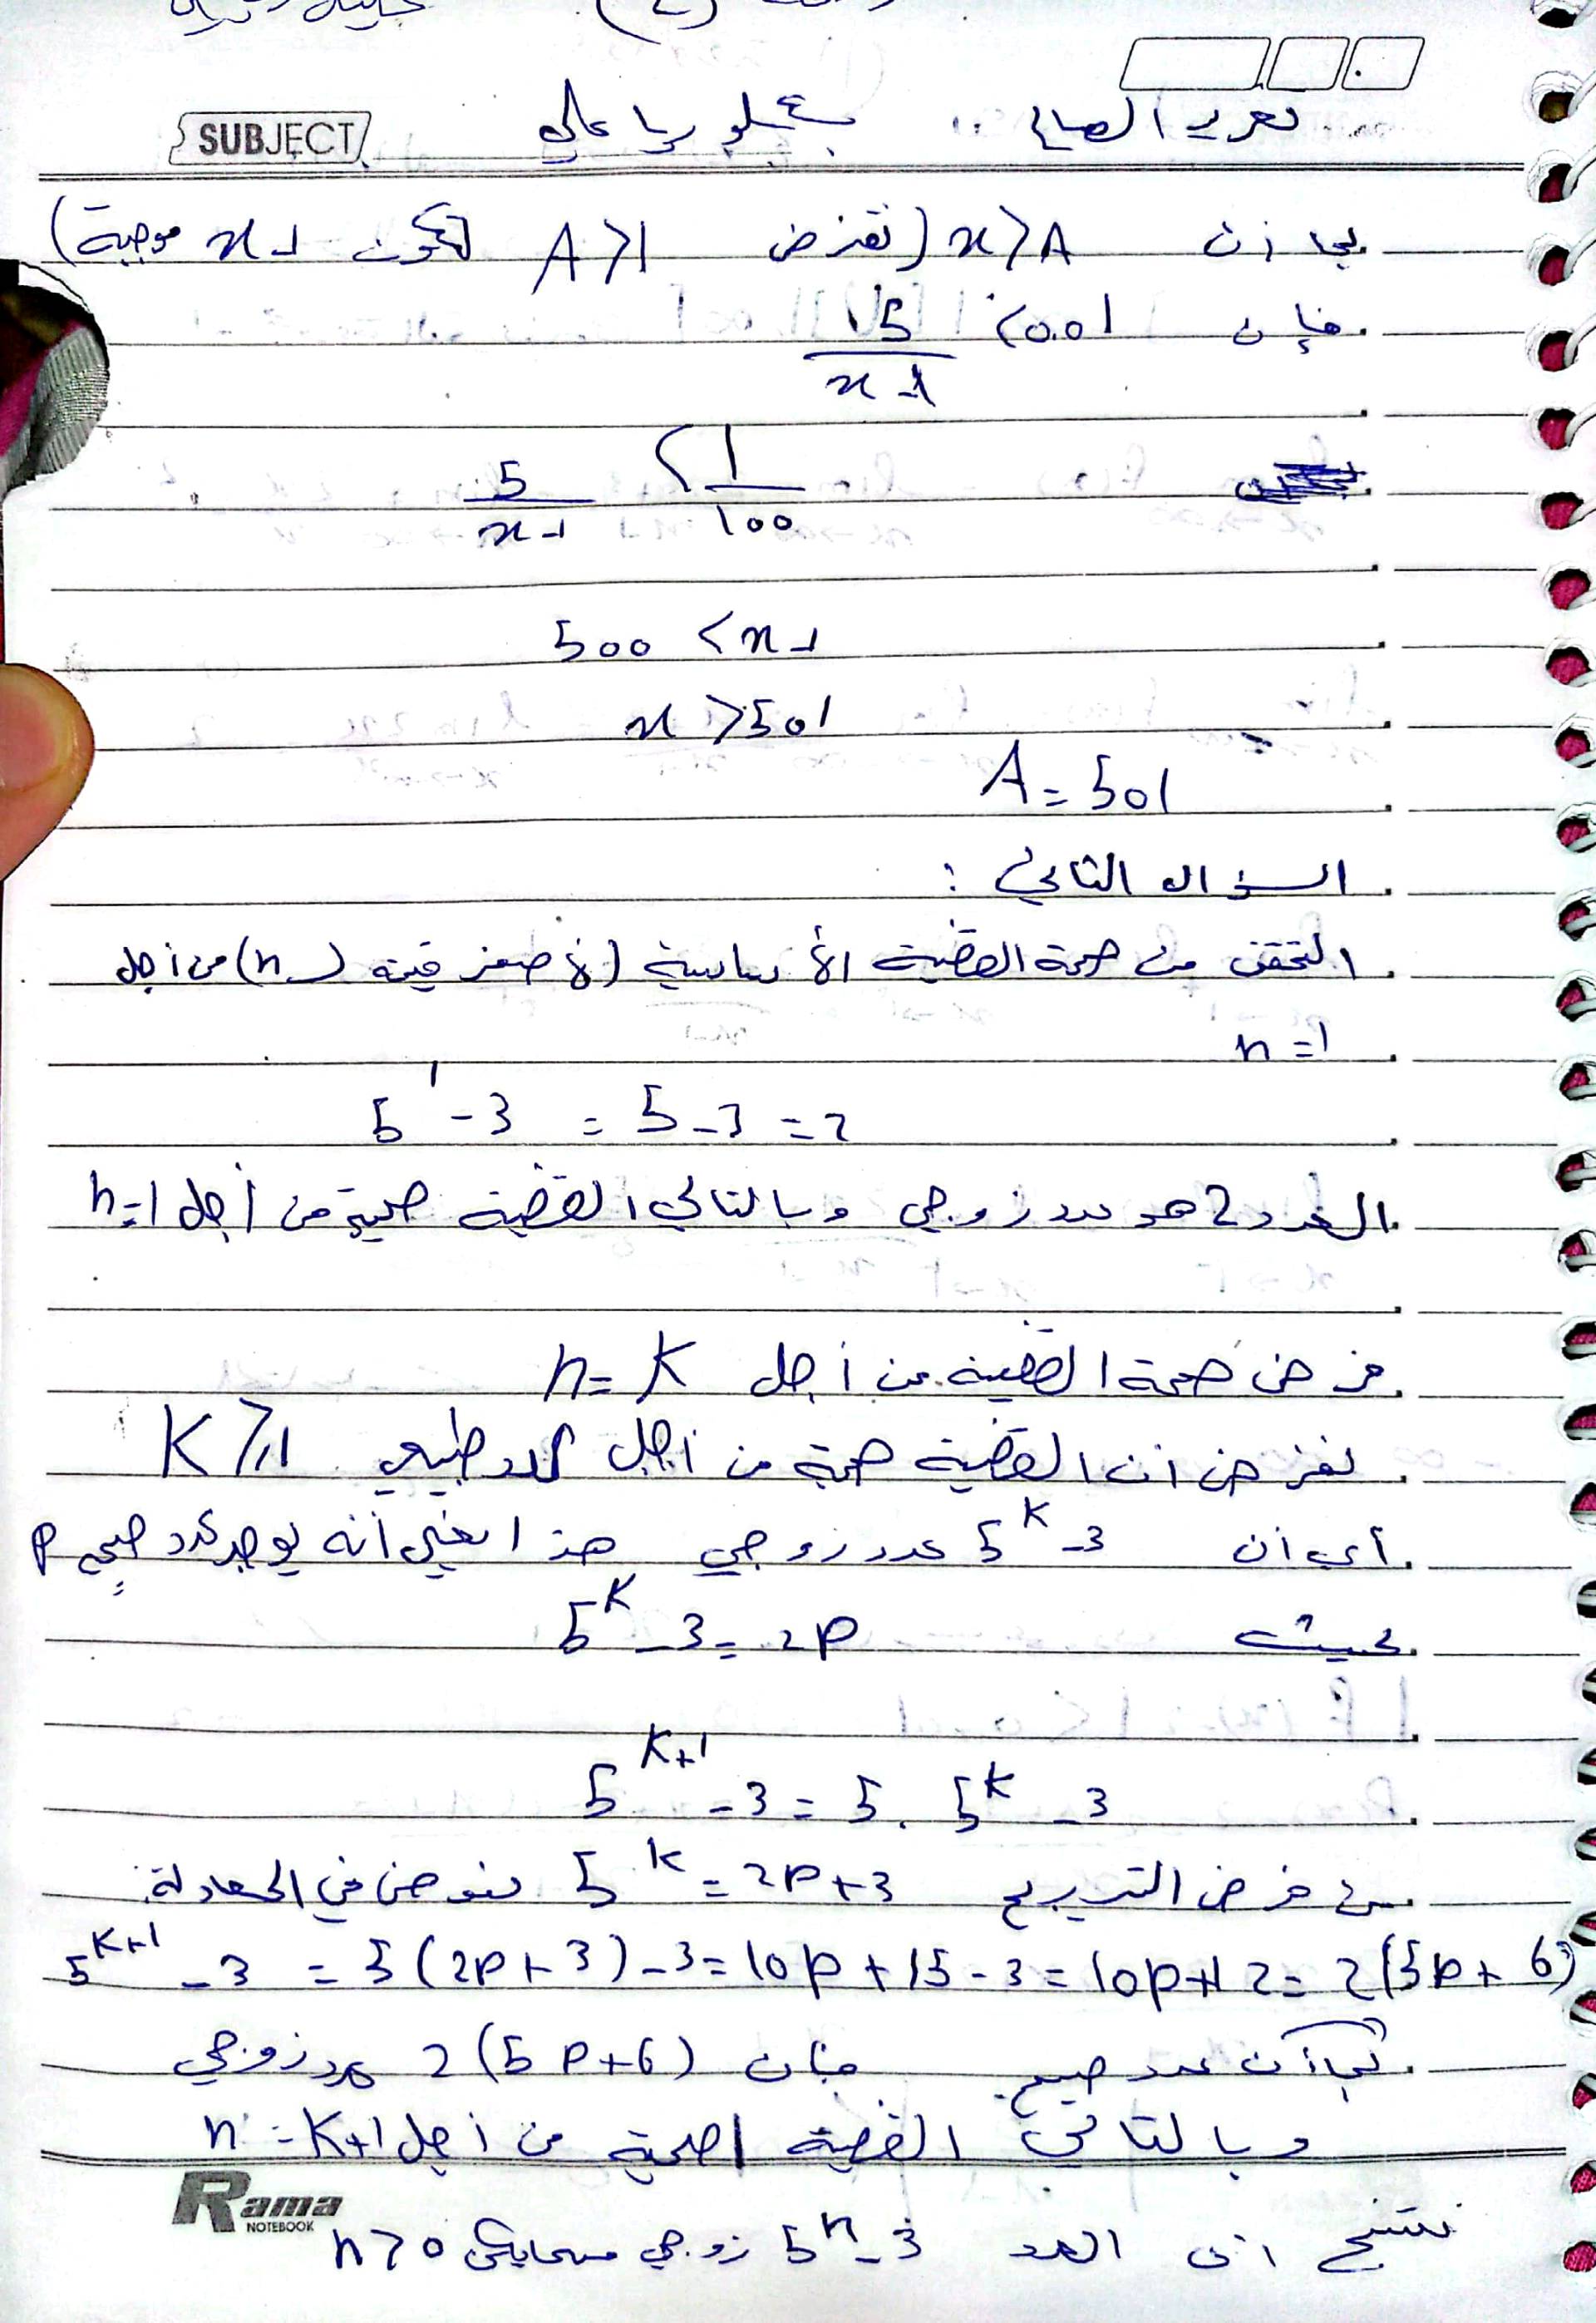 SUBJECT
بما ان x>A (نفترض A>1 لتكون x-1 موجبة)
فإن 5/(x-1) <0.01
5/(x-1) < 1/100
500 <x-1
x >501
A=501
السؤال الثاني :
التحقق من صحة القضية الأساسية (لأصغر قيمة لـ n) من أجل
n=1
5^1 -3 = 5-3 =2
العدد 2 هو عدد زوجي وبالتالي القضية صحيحة من أجل n=1
فرض صحة القضية من أجل n=K
نفترض ان القضية صحيحة من أجل عدد طبيعي K⩾1
أي ان 5^K -3 عدد زوجي هذا يعني أنه يوجد عدد صحيح P
بحيث 5^K -3= 2P
5^(K+1) -3 = 5. 5^K -3
من فرض التدريج 5^k = 2P+3 نعوض في المعادلة:
5^(K+1) -3 = 5(2P+3)-3=10P+15-3=10P+12=2(5P+6)
بما أن عدد صحيح فإن 2(5P+6) عدد زوجي
وبالتالي القضية صحيحة من أجل n=K+1
نستنتج ان العدد 5^n -3 زوجي n>0
Rama
NOTEBOOK